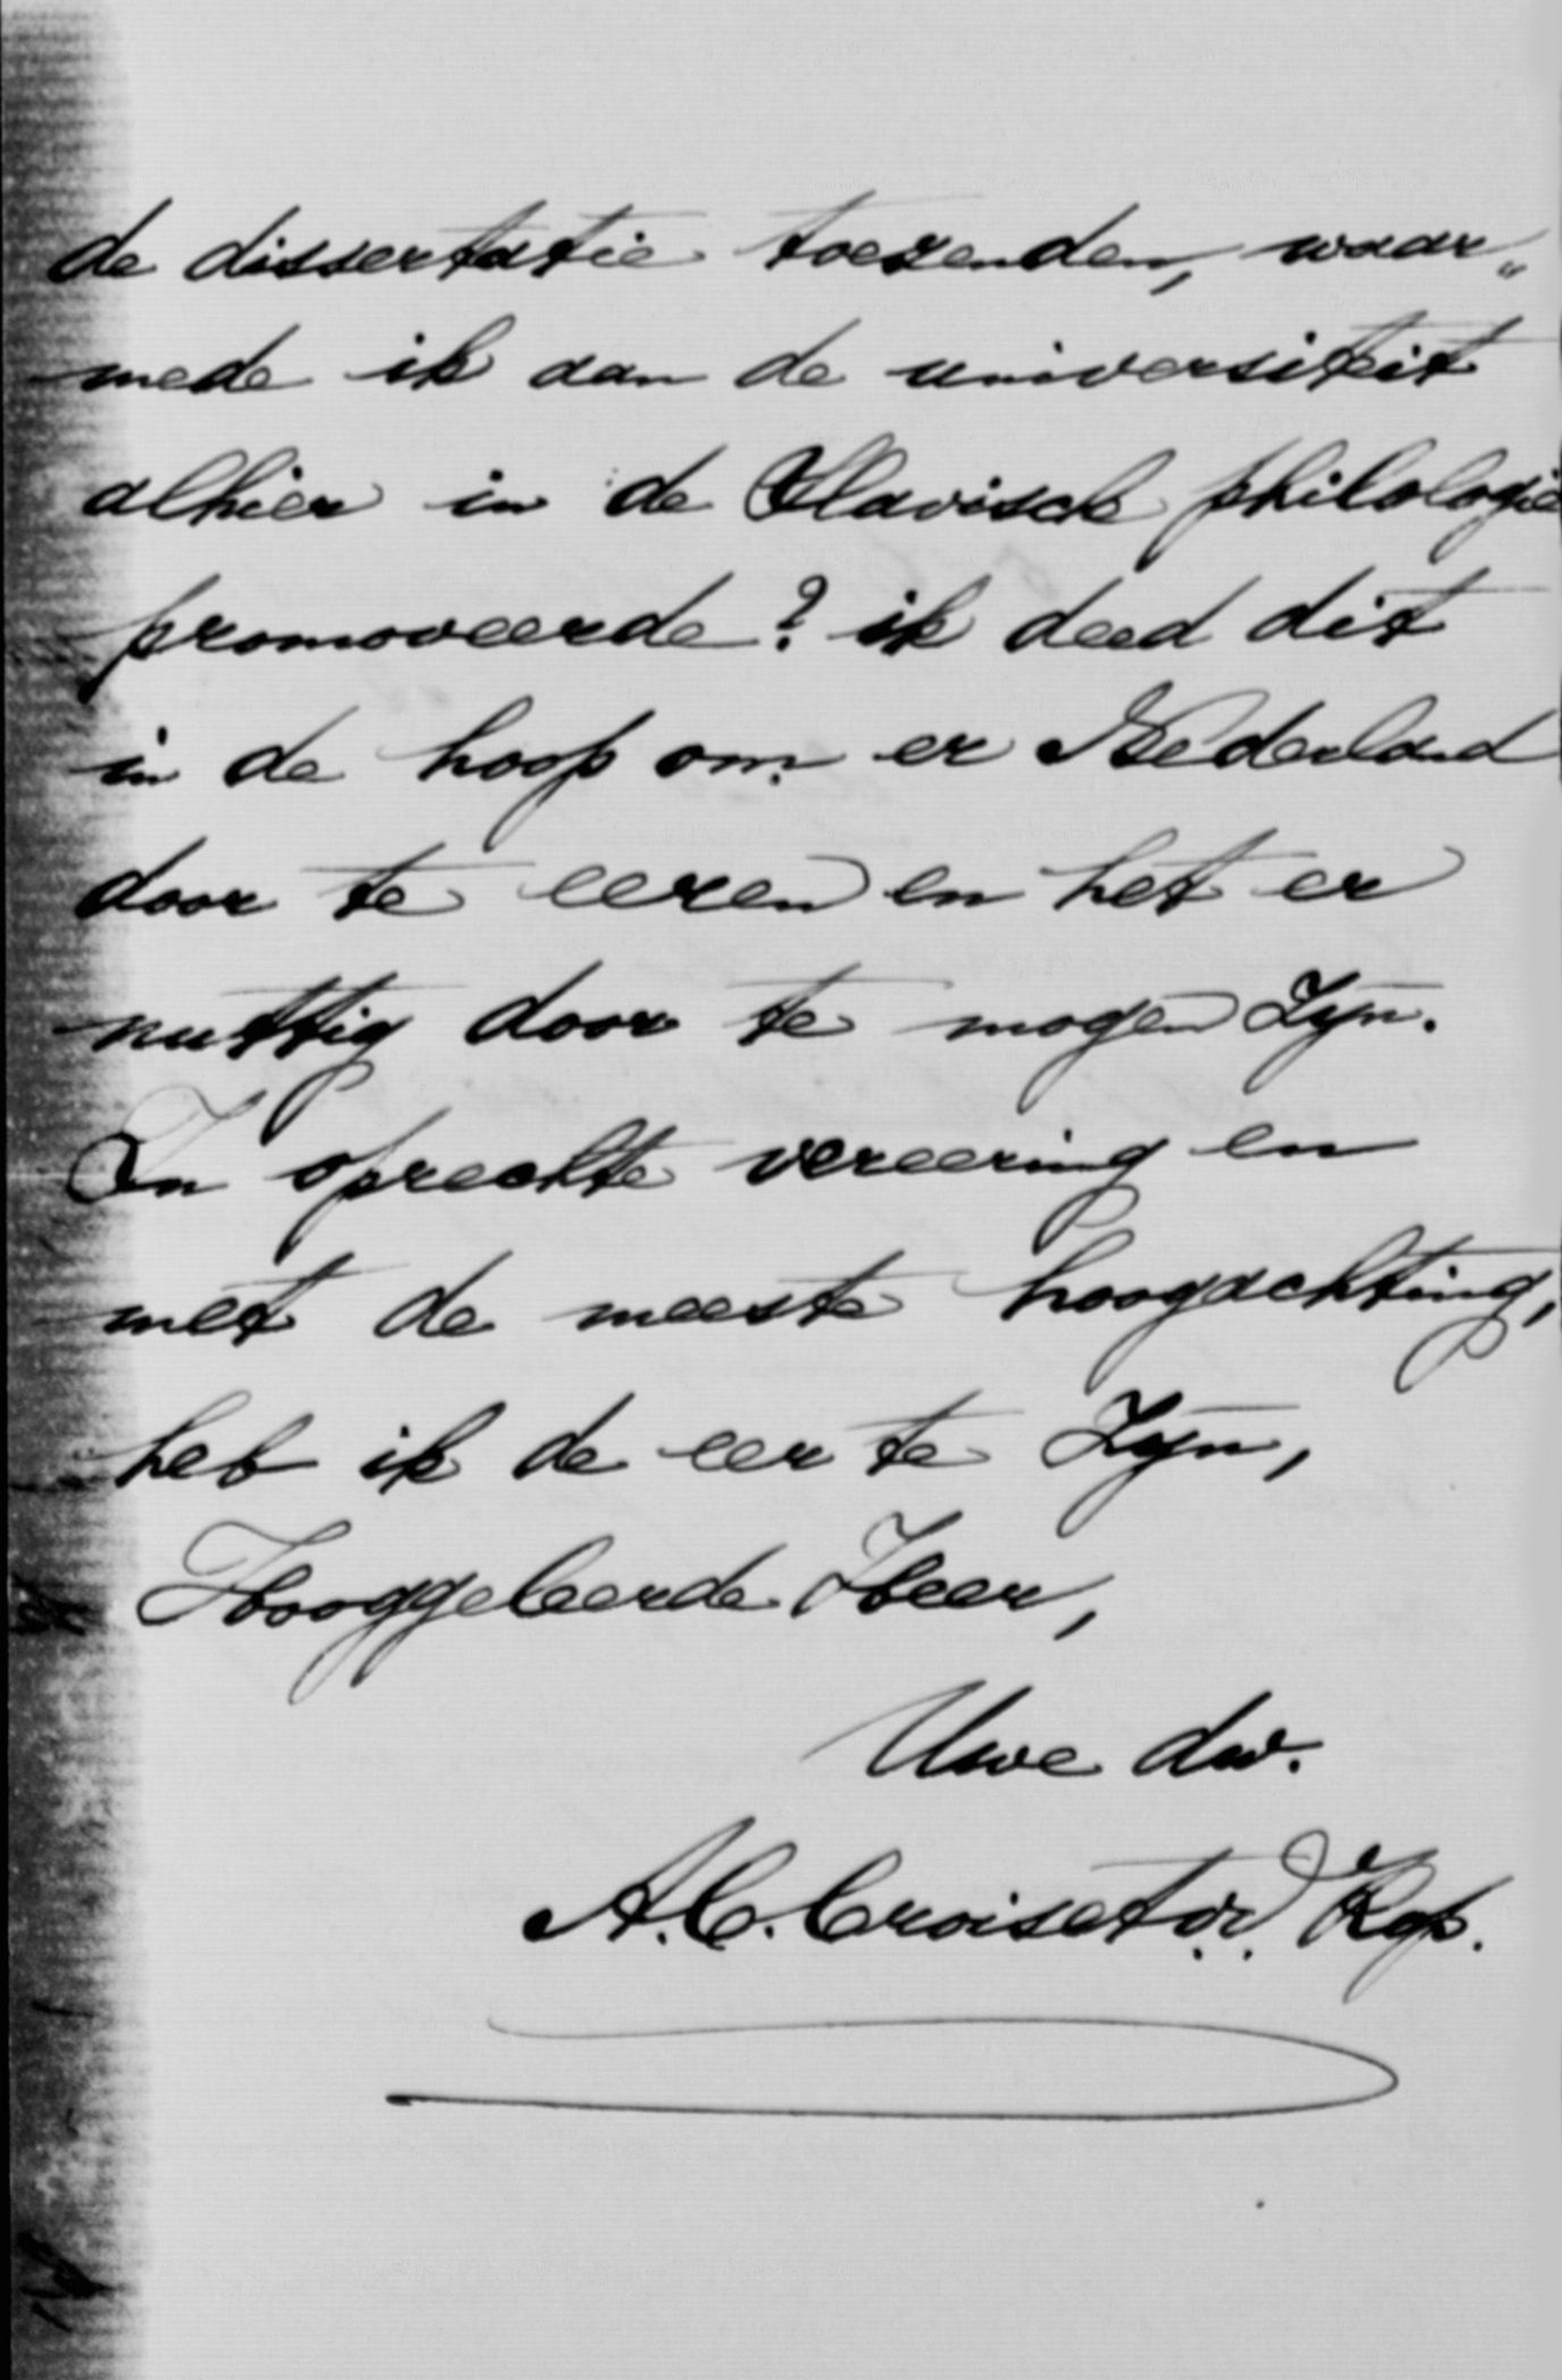 de dissertatie toezenden, waar„
mede ik aan de universiteit
alhier in de Slavisch philologie
promoveerde? ik deed dit
in de hoop om er Nederland
door te eeren en het er
nuttig door te mogen zyn.
In oprechte vereering en
met de meeste hoogachting,
heb ik de eer te zyn,
Hooggeleerde Heer,
Uwe dw.
A.C. Croiset v.d. Kop.